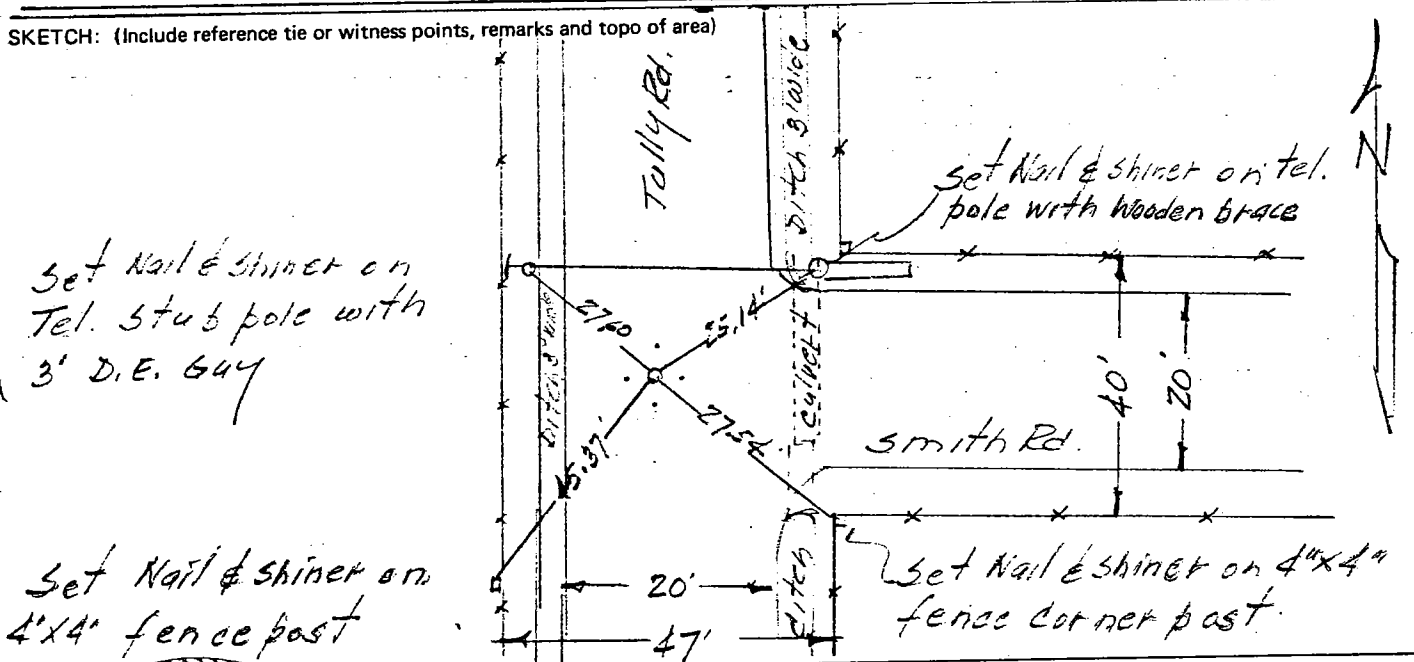 SKETCH: (Include reference tie or witness points, remarks and topo of area)
Tully Rd.
Ditch 3' wide
N
Set Nail & Shiner on tel.
pole with Wooden brace
Set Nail & Shiner on
Tel. Stub pole with
3' D.E. Guy
27.60
25.14'
Ditch 3' wide
Culvert
40'
20'
27.54
Smith Rd.
Ditch
Set Nail & Shiner on
4"x4" fence post
20'
47'
Set Nail & Shiner on 4"x4"
fence corner post